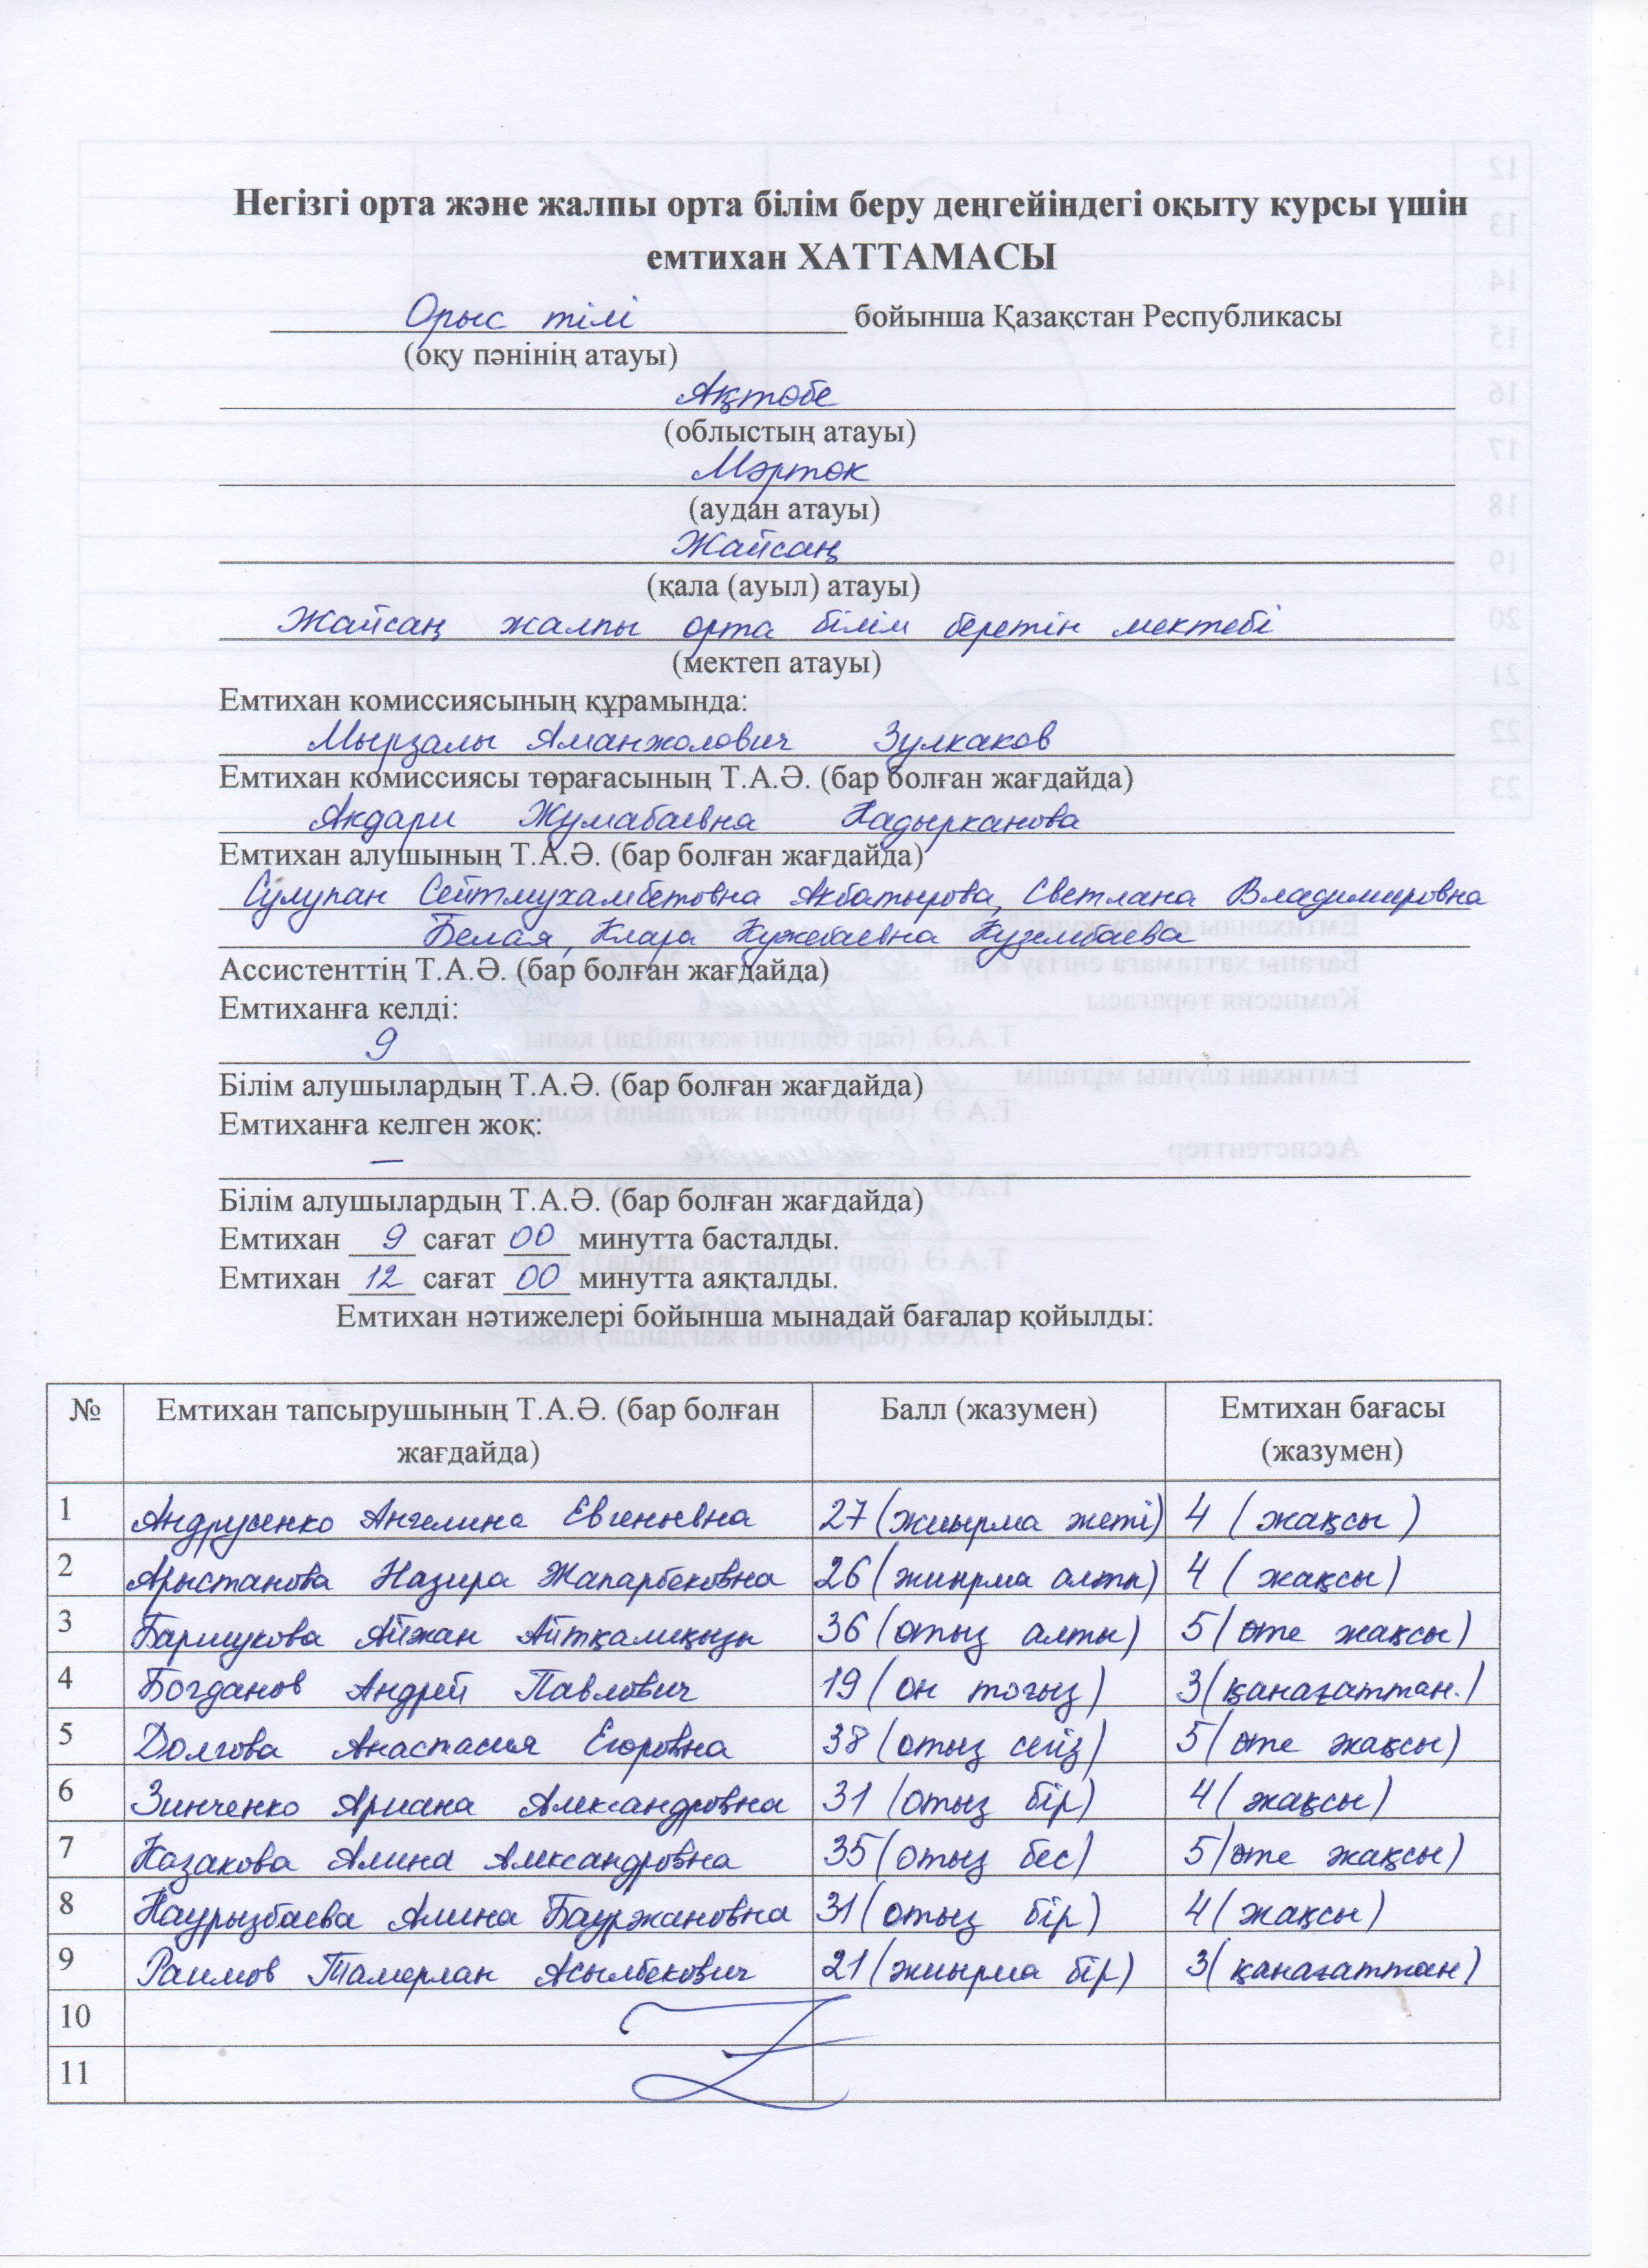 Негізгі орта және жалпы орта білім беру деңгейіндегі оқыту курсы үшін
емтихан ХАТТАМАСЫ
Орыс тілі бойынша Қазақстан Республикасы
(оқу пәнінің атауы)
Ақтөбе
(облыстың атауы)
Мәртөк
(аудан атауы)
Жайсаң
(қала (ауыл) атауы)
Жайсаң жалпы орта білім беретін мектебі
(мектеп атауы)
Емтихан комиссиясының құрамында:
Мырзалы Аманжолович Зулкаков
Емтихан комиссиясы төрағасының Т.А.Ә. (бар болған жағдайда)
Акдари Жумабаевна Кадырканова
Емтихан алушының Т.А.Ә. (бар болған жағдайда)
Сулупан Сейтмухамбетовна Акбатырова, Светлана Владимировна
Белая, Клара Кужебаевна Кузембаева
Ассистенттің Т.А.Ә. (бар болған жағдайда)
Емтиханға келді:
9
Білім алушылардың Т.А.Ә. (бар болған жағдайда)
Емтиханға келген жоқ:
—
Білім алушылардың Т.А.Ә. (бар болған жағдайда)
Емтихан 9 сағат 00 минутта басталды.
Емтихан 12 сағат 00 минутта аяқталды.
Емтихан нәтижелері бойынша мынадай бағалар қойылды:
№ Емтихан тапсырушының Т.А.Ә. (бар болған жағдайда) Балл (жазумен) Емтихан бағасы (жазумен)
1 Андрусенко Ангелина Евгеньевна 27 (жиырма жеті) 4 (жақсы)
2 Арыстанова Назира Жапарбековна 26 (жиырма алты) 4 (жақсы)
3 Баршукова Айжан Айтқалиқызы 36 (отыз алты) 5 (өте жақсы)
4 Богданов Андрей Павлович 19 (он тоғыз) 3 (қанағаттан.)
5 Долгова Анастасия Егоровна 38 (отыз сегіз) 5 (өте жақсы)
6 Зинченко Ариана Александровна 31 (отыз бір) 4 (жақсы)
7 Казакова Алина Александровна 35 (отыз бес) 5 (өте жақсы)
8 Наурызбаева Алина Бауржановна 31 (отыз бір) 4 (жақсы)
9 Раимов Тамерлан Асылбекович 21 (жиырма бір) 3 (қанағаттан)
10
11